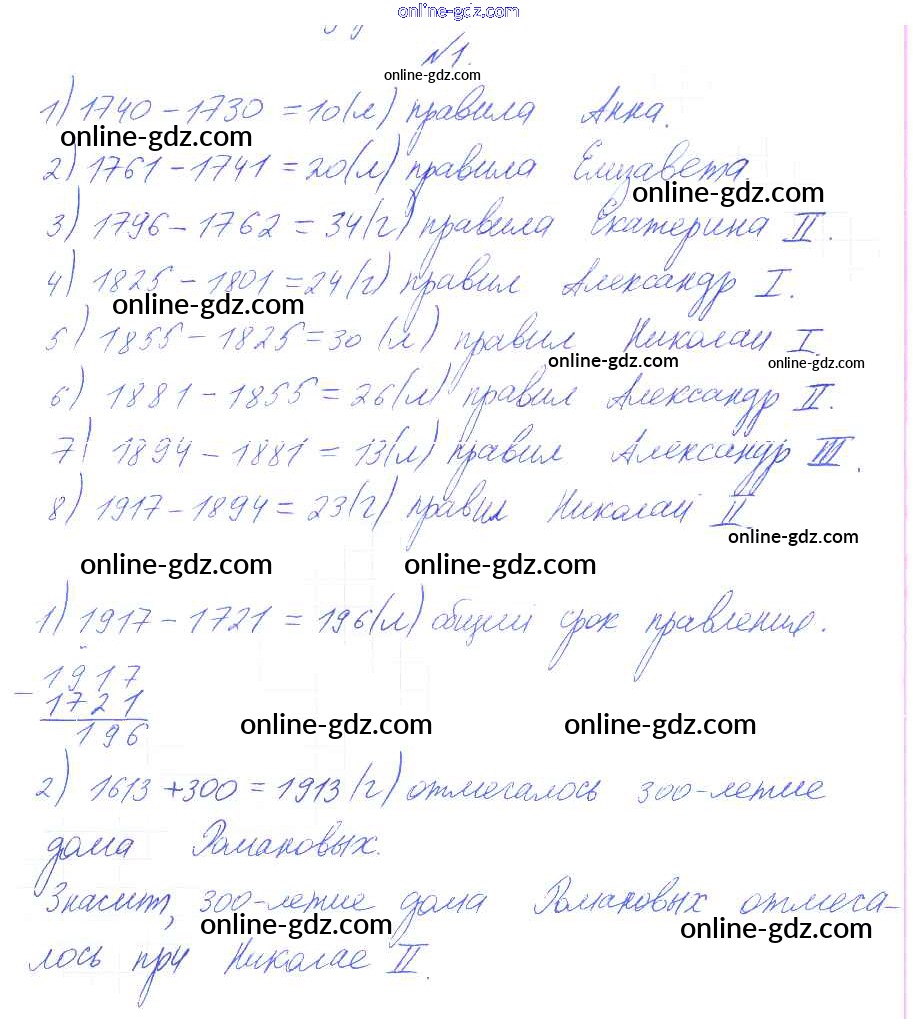 online-gdz.com
№1.
online-gdz.com
1) 1740 - 1730 = 10(л) правила Анна.
online-gdz.com
2) 1761 - 1741 = 20(л) правила Елизавета.
online-gdz.com
3) 1796 - 1762 = 34(г) правила Екатерина II.
4) 1825 - 1801 = 24(г) правил Александр I.
online-gdz.com
5) 1855 - 1825 = 30 (л) правил Николай I.
online-gdz.com online-gdz.com
6) 1881 - 1855 = 26(л) правил Александр II.
7) 1894 - 1881 = 13(л) правил Александр III.
8) 1917 - 1894 = 23(г) правил Николай II
online-gdz.com
online-gdz.com online-gdz.com
1) 1917 - 1721 = 196(л) общий срок правления.
- 1917
1721
196
online-gdz.com online-gdz.com
2) 1613 + 300 = 1913(г) отмечалось 300-летие
дома Романовых.
Значит, 300-летие дома Романовых отмеча-
online-gdz.com online-gdz.com
лось при Николае II.